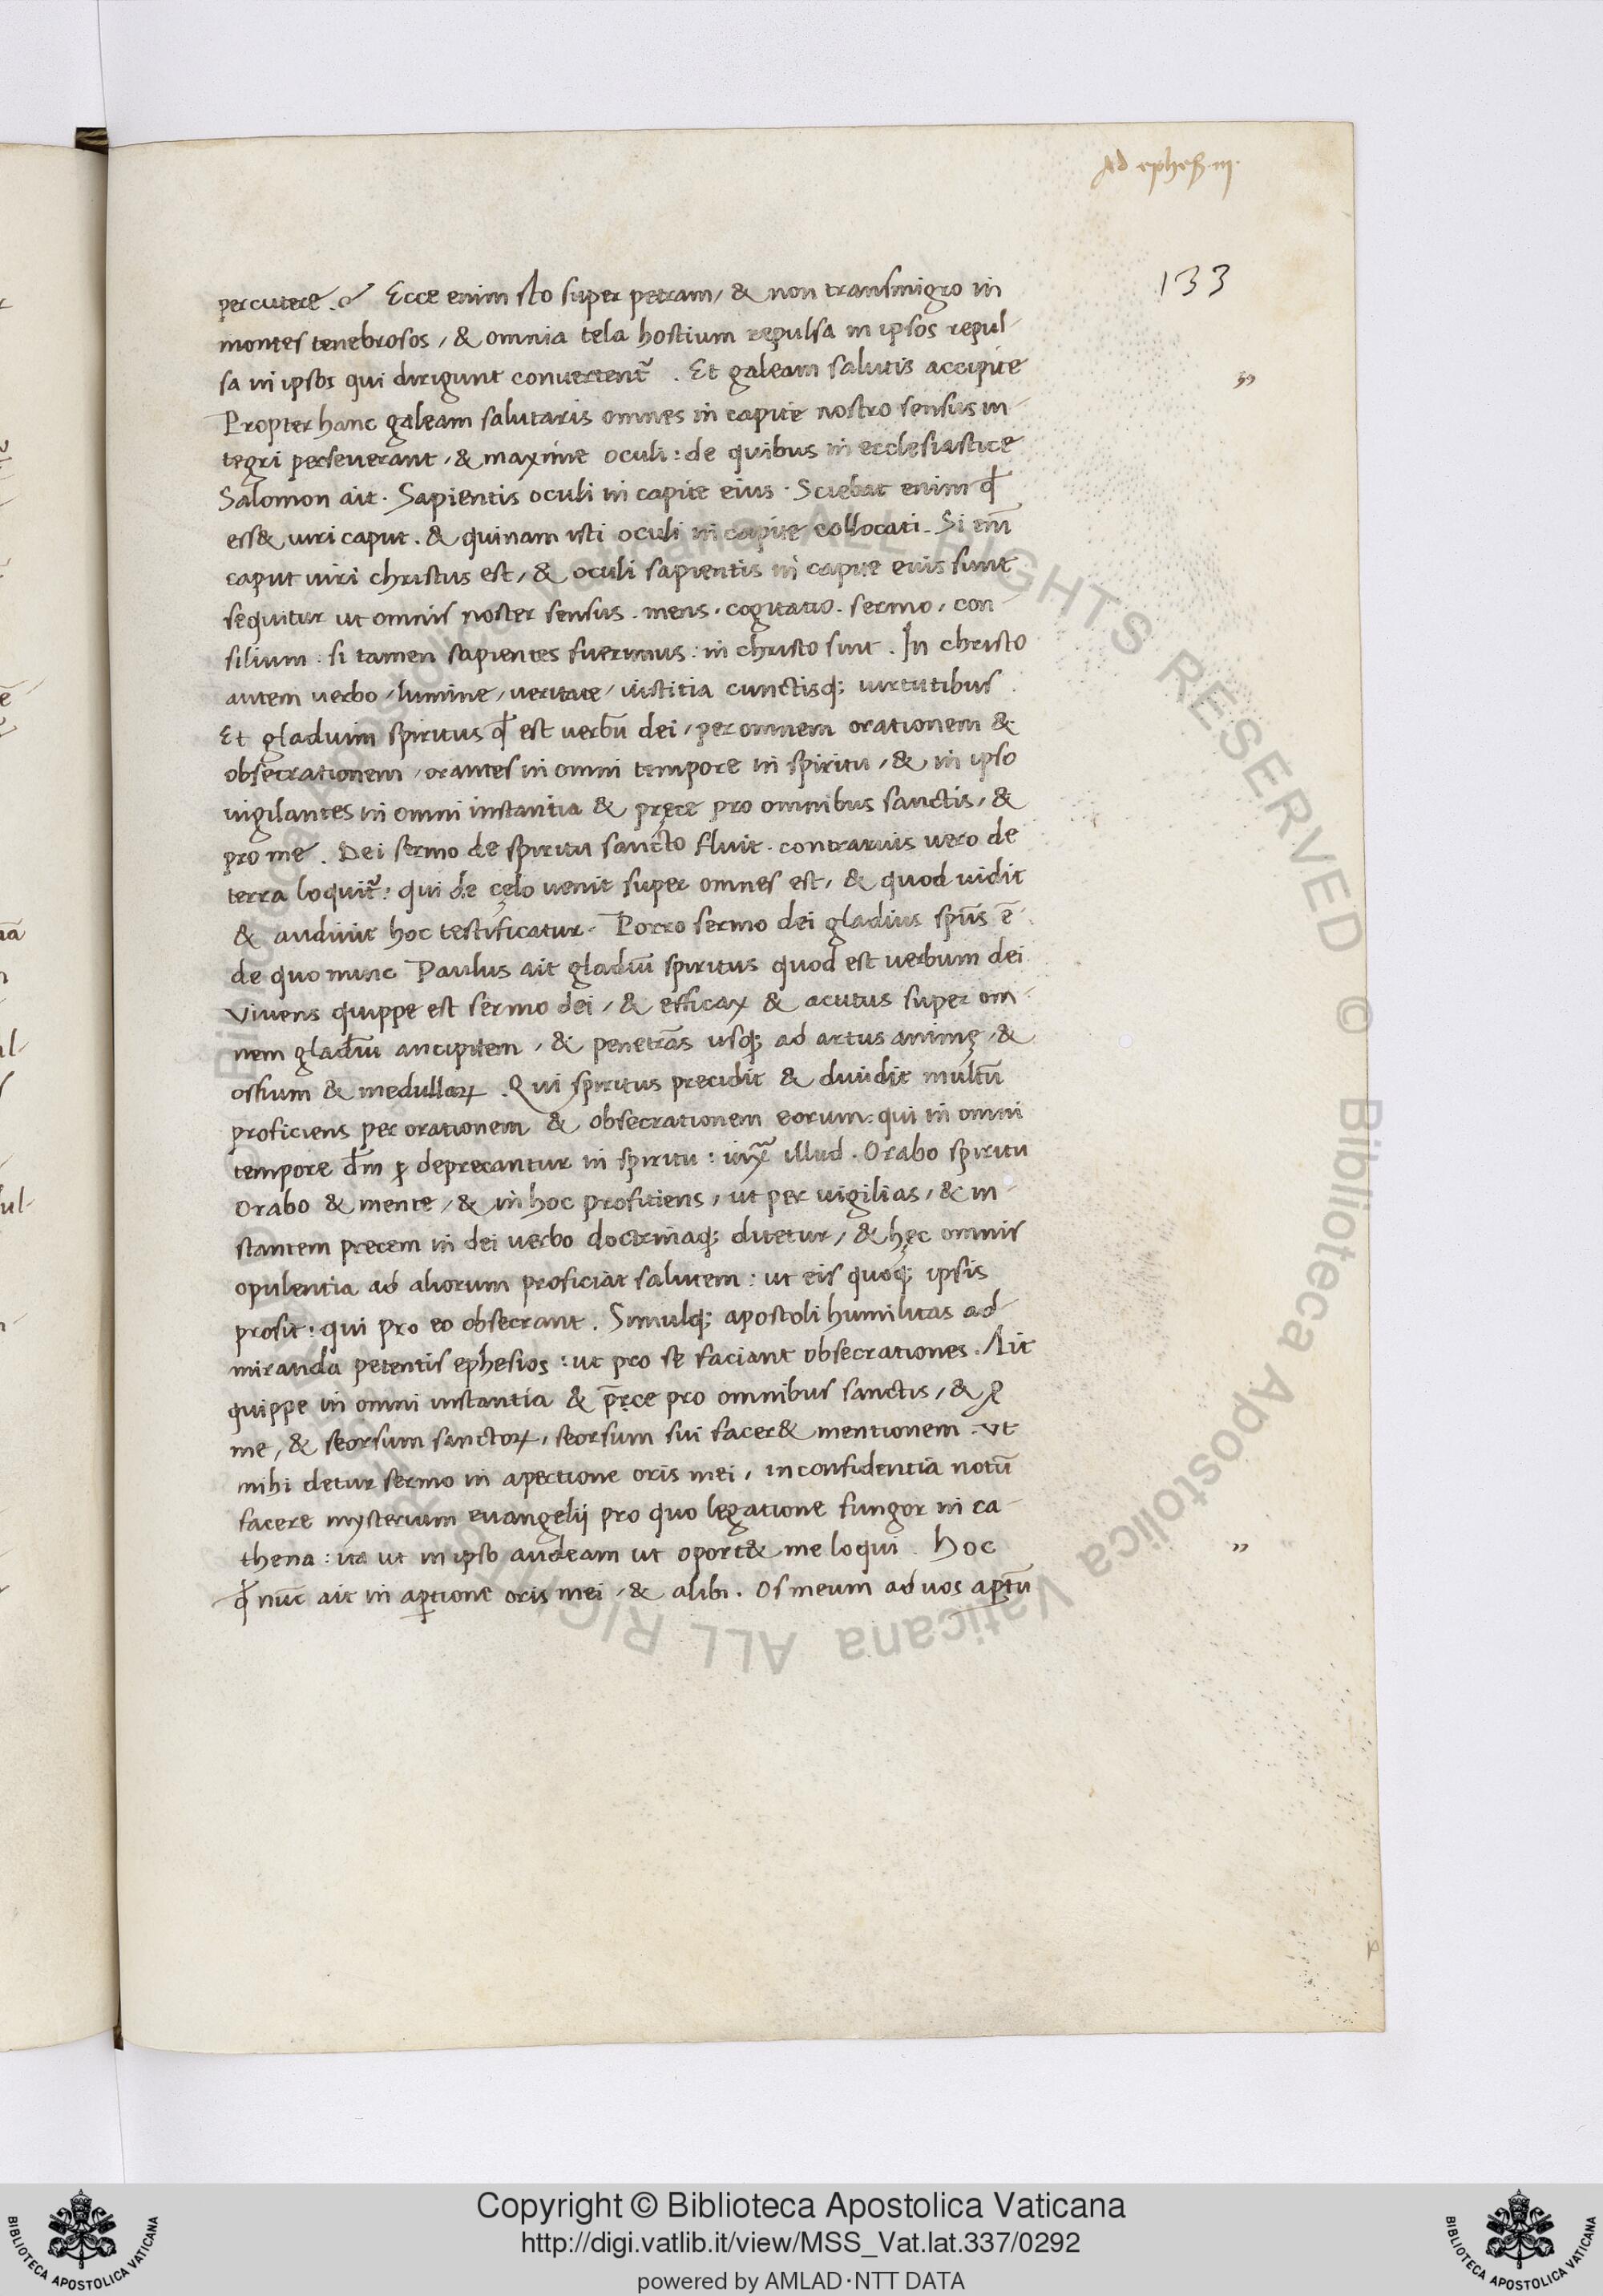 Ad ephes. iij.
133
percutere. Ecce enim sto super petram, & non transmigro in
montes tenebrosos, & omnia tela hostium repulsa in ipsos repul-
sa in ipsos qui dirigunt conuertent᷑. Et galeam salutis accipite
Propter hanc galeam salutaris omnes in capite nostro sensus in-
tegri perseuerant, & maxime oculi: de quibus in ecclesiastice
Salomon ait. Sapientis oculi in capite eius. Sciebat enim qđ
ess& uiri caput. & quinam isti oculi in capite collocati. Si eni᷑
caput uiri christus est, & oculi sapientis in capite eius sunt
sequitur ut omnis noster sensus. mens. cogitatio. sermo, con-
silium: si tamen sapientes fuerimus: in christo sint. In christo
autem uerbo, lumine, ueritate, iustitia cunctisq; uirtutibus.
Et gladium spiritus qđ est uerbū dei, per omnem orationem &
obsecrationem, orantes in omni tempore in spiritu, & in ipso
uigilantes in omni instantia & pręce pro omnibus sanctis, &
pro me. Dei sermo de spiritu sancto fluit. contrarius uero de
terra loquit᷑: qui de cęlo uenit super omnes est, & quod uidit
& audiuit hoc testificatur. Porro sermo dei gladius spūs ē.
de quo nunc Paulus ait gladiū spiritus quod est uerbum dei
Viuens quippe est sermo dei, & efficax & acutus super om-
nem gladiū ancipitem, & penetrās usq; ad artus animę, &
ossium & medullaꝝ. Qui spiritus precidit & diuidit multū
proficiens per orationem & obsecrationem eorum: qui in omni
tempore dm̄ ꝑ deprecantur in spiritu: iuxᵃ illud. Orabo spiritu
orabo & mente, & in hoc profitiens, ut per uigilias, & in-
stantem precem in dei uerbo doctrinaq; ditetur, & hęc omnis
opulentia ad aliorum proficiat salutem: ut eis quoq; ipsis
prosit: qui pro eo obsecrant. Simulq; apostoli humilitas ad-
miranda petentis ephesios: ut pro se faciant obsecrationes. Ait
quippe in omni instantia & pręce pro omnibus sanctis, & ꝓ
me, & seorsum sanctoꝝ, seorsum sui facer& mentionem. Vt
mihi detur sermo in apertione oris mei, in confidentia notū
facere mysterium euangelij pro quo legatione fungor in ca-
thena: ita ut in ipso audeam ut oport& me loqui. Hoc
qđ nūc ait in aꝑtione oris mei, & alibi. Os meum ad uos aꝑtū
”
”
Copyright © Biblioteca Apostolica Vaticana
http://digi.vatlib.it/view/MSS_Vat.lat.337/0292
powered by AMLAD·NTT DATA
BIBLIOTECA APOSTOLICA VATICANA
BIBLIOTECA APOSTOLICA VATICANA
© Biblioteca Apostolica Vaticana ALL RIGHTS RESERVED